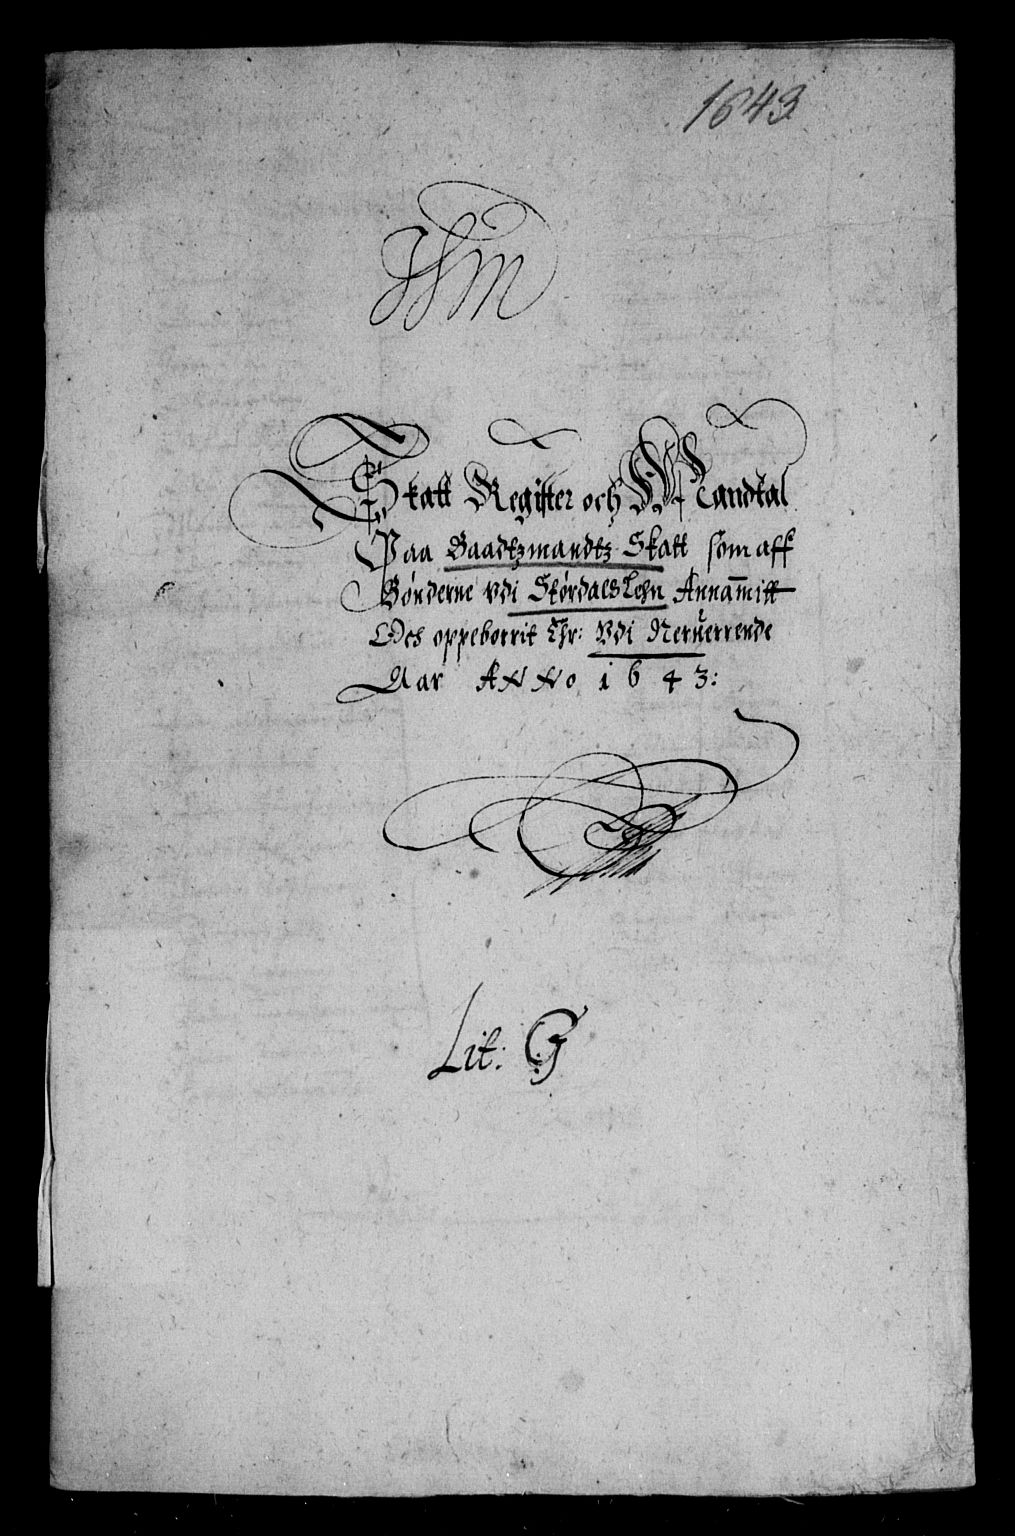 1643
Skatt Register och Mandtal
Paa Baadtzmandtz Skatt som aff
Bønderne vdi Størdals Lehn Annammitt
Och oppeborrit Er: Vdi Neruerrende
Aar ANNO 1643:
Lit: G